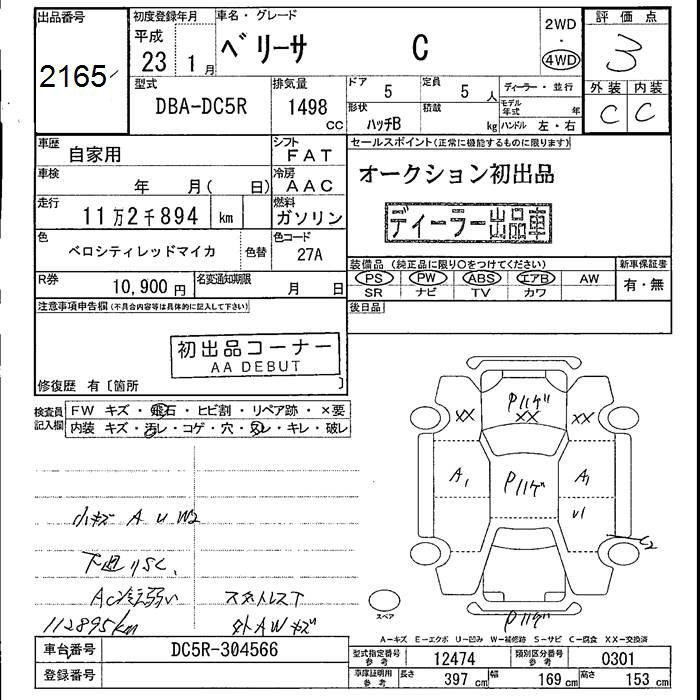 出品番号
2165
初度登録年月
平成
23 1月
車名・グレード
ベリーサ C
2WD
・
4WD
評価点
3
外装 内装
C C
型式
DBA-DC5R
排気量
1498
CC
ドア 5
定員 5人
ディーラー・並行
形状
ハッチB
積載
kg
モデル年式 年
ハンドル 左・右
車歴
自家用
シフト
FAT
車検
年 月( 日)
冷房
AAC
走行
11万2千894 km
燃料
ガソリン
色
ベロシティレッドマイカ
色替
色コード
27A
R券
10,900円
名変通知期限
月 日
セールスポイント(正常に機能するものに限ります)
オークション初出品
ディーラー出品車
装備品(純正品に限り○をつけてください)
新車保証書
PS PW ABS エアB AW
有・無
SR ナビ TV カワ
後日品
注意事項申告欄(不具合内容等は具体的に記入して下さい)
初出品コーナー
AA DEBUT
修復歴 有〔箇所 〕
検査員記入欄
FW キズ・飛石・ヒビ割・リペア跡・×要
内装 キズ・汚レ・コゲ・穴・スレ・キレ・破レ
小キズ A U W2
下廻りSC、
AC冷え弱い
スタットレスT
112895km
外AWキズ
Pハゲ
XX XX XX
A1 Pハゲ A1
U1
C2
スペア
Pハゲ
A-キズ E-エクボ U-凹み W-補修跡 S-サビ C-腐食 XX-交換済
車台番号
DC5R-304566
登録番号
型式指定番号
参考
12474
類別区分番号
参考
0301
車庫証明用
参考
長さ 397 cm
幅 169 cm
高さ 153 cm